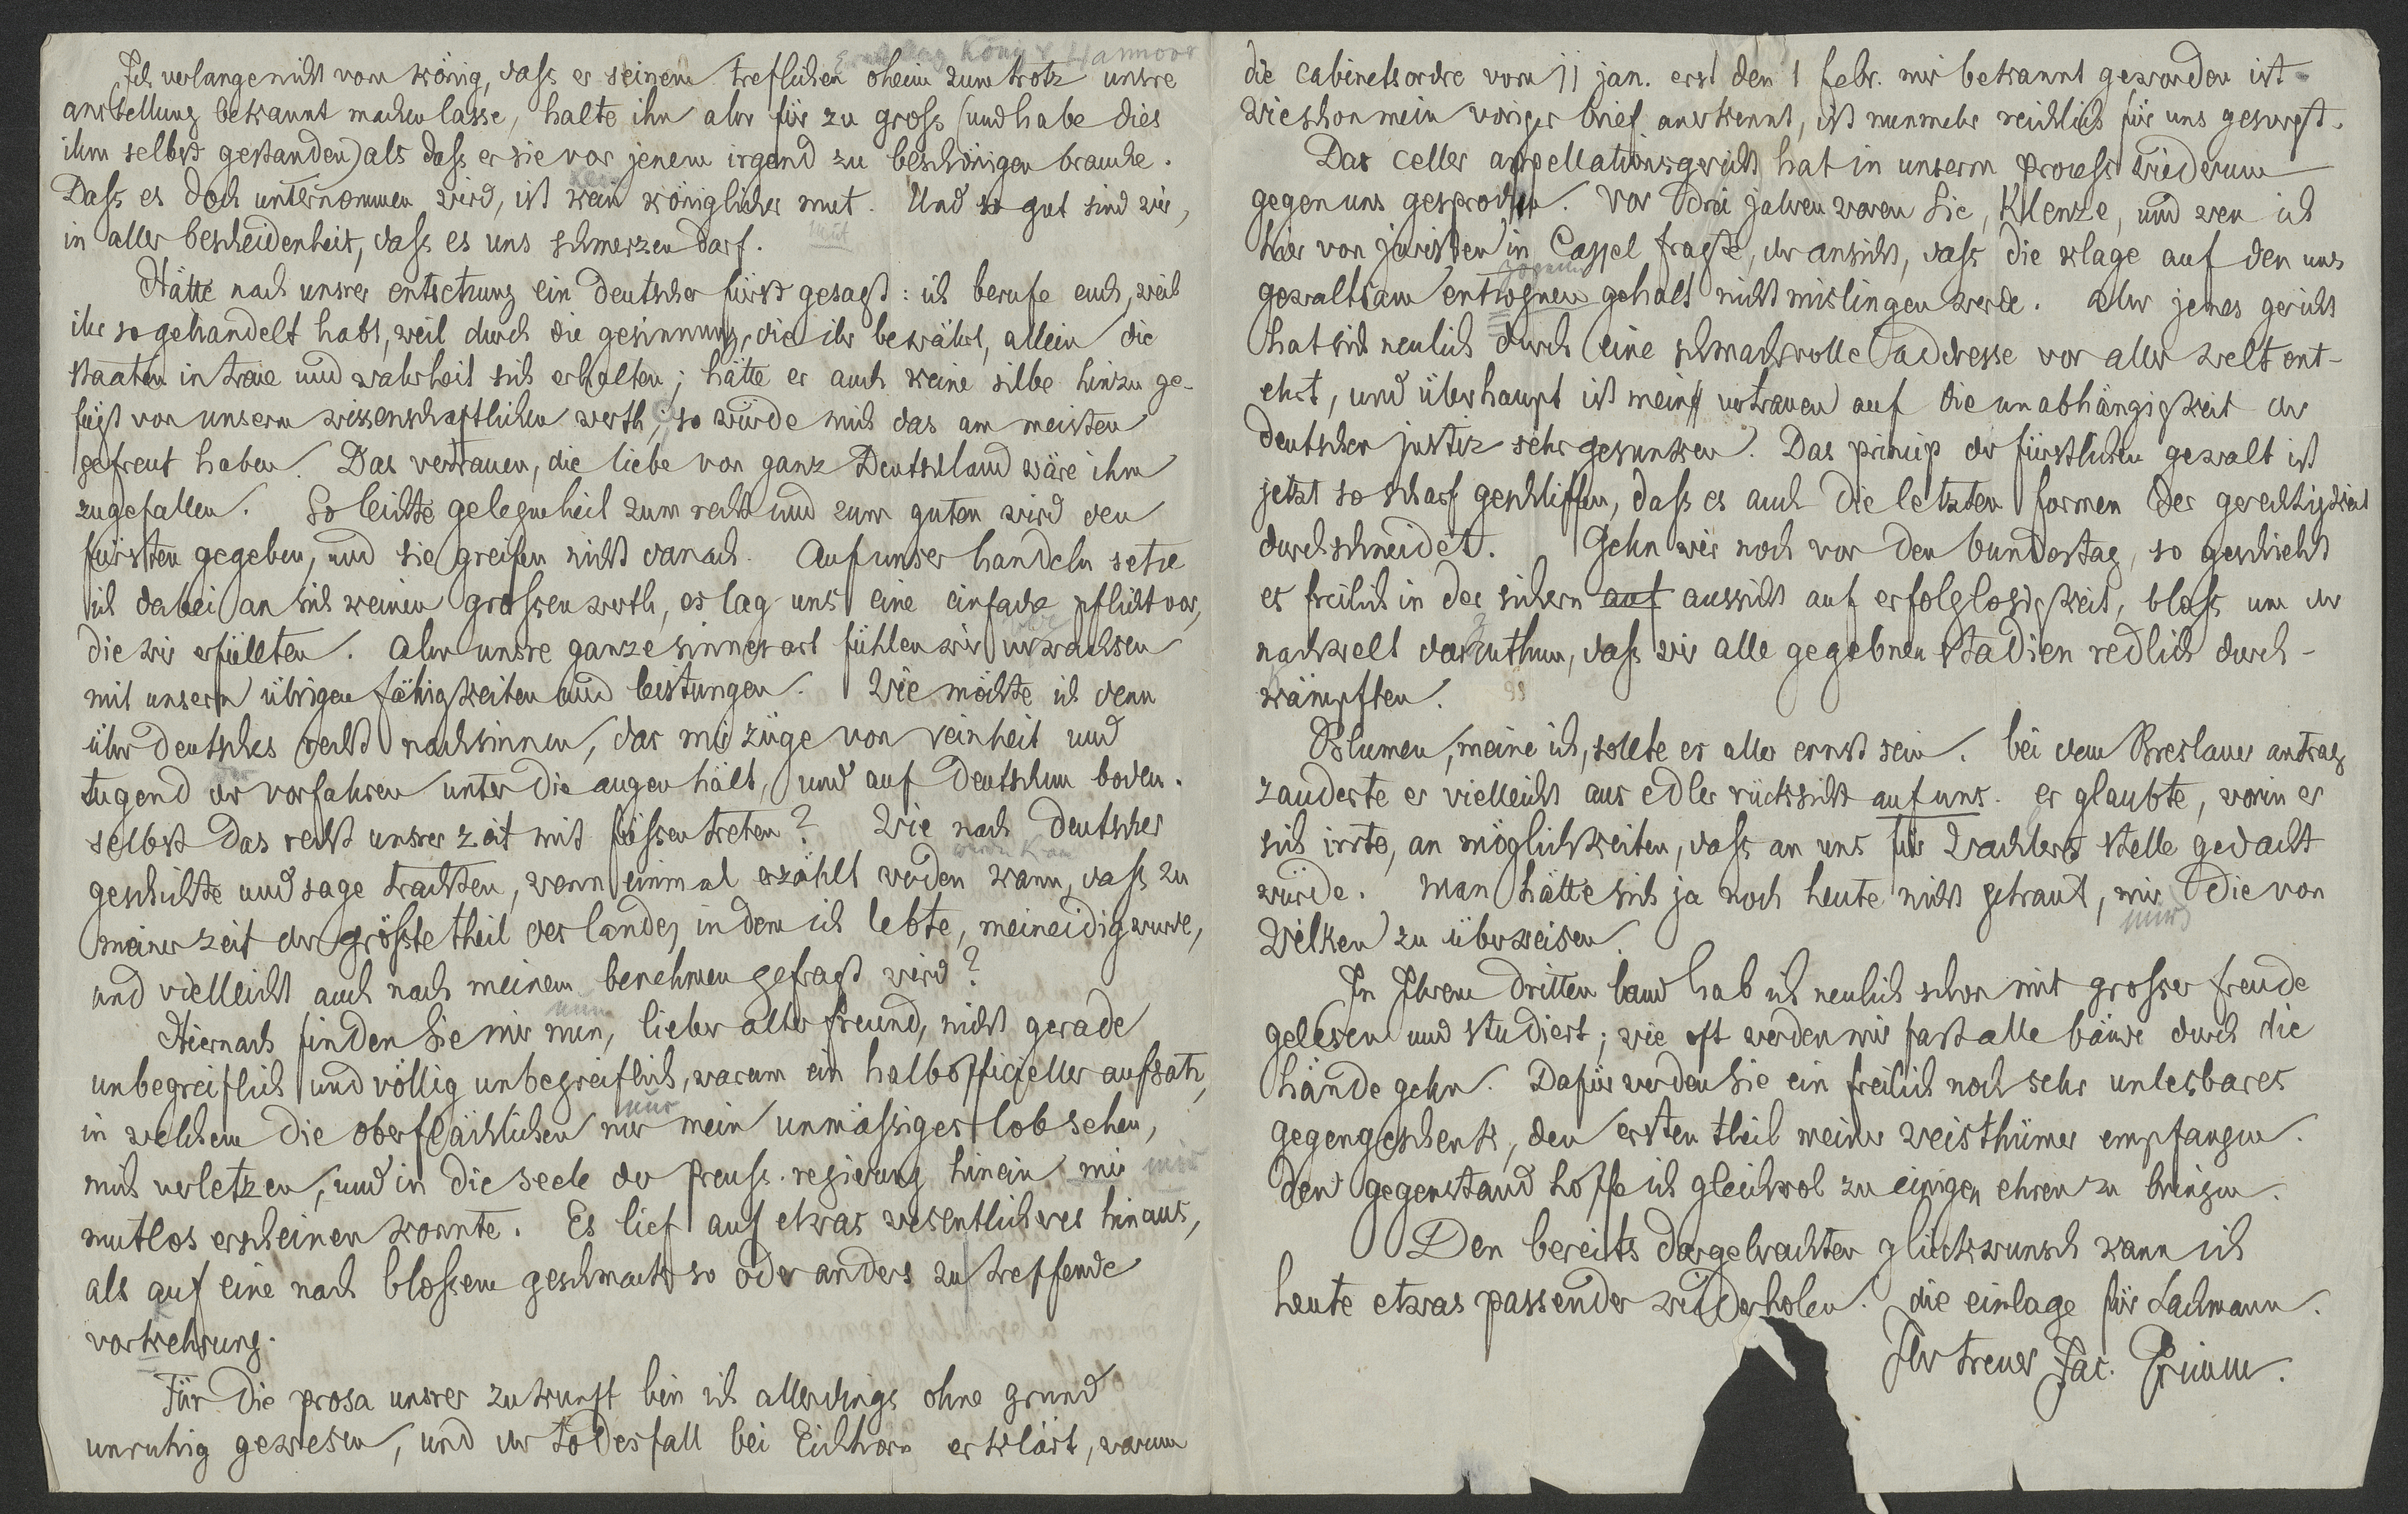 Ich verlange nicht vom könig, dass er seinem treflichen oheim zum trotz unsre
anstellung bekannt machen lasse, halte ihn aber für zu gross (und habe dies
ihm selbst gestanden) als dass er sie vor jenem irgend zu beschönigen brauche.
Dass es doch unternommen wird, ist kein königlicher mut. Und so gut sind wir,
in aller bescheidenheit, dass es uns schmerzen darf.
Hätte nach unsrer entsetzung ein deutscher fürst gesagt: ich berufe euch, weil
ihr so gehandelt habt, weil durch die gesinnung, die ihr bewährt, allein die
staaten in treue und wahrheit sich erhalten; hätte er auch keine silbe hinzu ge-
fügt von unserm wissenschaftlichen werth; so würde mich das am meisten
gefreut haben. Das vertrauen, die liebe von ganz Deutschland wäre ihm
zugefallen. So leichte gelegenheit zum recht und zum guten wird den
fürsten gegeben, und sie greifen nicht danach. Auf unser handeln setze
ich dabei an sich keinen grossen werth, es lag uns eine einfache pflicht vor,
die wir erfüllten. Aber unsre ganze sinnesart fühlen wir verwachsen
mit unsern übrigen fähigkeiten und leistungen. Wie möchte ich denn
über deutsches recht nachsinnen, das mir züge von reinheit und
tugend der vorfahren unter die augen hält, und auf deutschem boden
selbst das recht unsrer zeit mit füssen treten? Wie nach deutscher
geschichte und sage trachten, wenn einmal erzählt werden kann, dass zu
meiner zeit der grösste theil des landes, in dem ich lebte, meineidig wurde,
und vielleicht auch nach meinem benehmen gefragt wird?
Hiernach finden Sie mir nun, lieber alter freund, nicht gerade
unbegreiflich und völlig unbegreiflich, warum ein halbofficieller aufsatz,
in welchem die oberflächlichen nur mein unmässiges lob sehen,
mich verletzen, und in die seele der preuss. regierung hinein mir
mutlos erscheinen konnte. Es lief auf etwas wesentlicheres hinaus,
als auf eine nach blossem geschmack so oder anders zu treffende
vorkehrung.
Für die prosa unsrer zukunft bin ich allerdings ohne grund
unruhig gewesen, und der todesfall bei Eichhorn erklärt, warum
die cabinetsordre vom 11 jan. erst den 1 febr. mir bekannt geworden ist.
Wie schon mein voriger brief anerkennt, ist nunmehr reichlich für uns gesorgt.
Das celler appellationsgericht hat in unserm process wiederum
gegen uns gesprochen. Vor drei jahren waren Sie, Klenze, und wen ich
hier von juristen in Cassel fragte, der ansicht, dass die klage auf den uns
gewaltsam entzognen gehalt nicht mislingen werde. Aber jenes gericht
hat sich neulich durch eine schmachvolle addresse vor aller welt ent-
ehrt, und überhaupt ist mein vertrauen auf die unabhängigkeit der
deutschen justiz sehr gesunken. Das princip der fürstlichen gewalt ist
jetzt so scharf geschliffen, dass es auch die letzten formen der gerechtigkeit
durchschneidet. Gehn wir noch vor den bundestag, so geschieht
es freilich in der sichern auf aussicht auf erfolglosigkeit, bloss um der
nachwelt darzuthun, dass wir alle gegebnen stadien redlich durch-
kämpften.
Blumen, meine ich, sollte es aller ernst sein. bei dem Breslauer antrag
zauderte er vielleicht aus edler rücksicht auf uns. er glaubte, worin er
sich irrte, an möglichkeiten, dass an uns für Wachlers stelle gedacht
würde. Man hätte sich ja noch heute nicht getraut, mir die von
Wilken zu überweisen.
In Ihrem dritten band hab ich neulich schon mit grosser freude
gelesen und studiert; wie oft werden mir fast alle bände durch die
hände gehn. Dafür werden Sie ein freilich noch sehr unlesbares
gegengeschenk, den ersten theil meiner weisthümer empfangen.
den gegenstand hoffe ich gleichwol zu einigen ehren zu bringen.
Den bereits dargebrachten glückwunsch kann ich
heute etwas passender wiederholen. die einlage für Lachmann.
Ihr treuer Jac. Grimm.